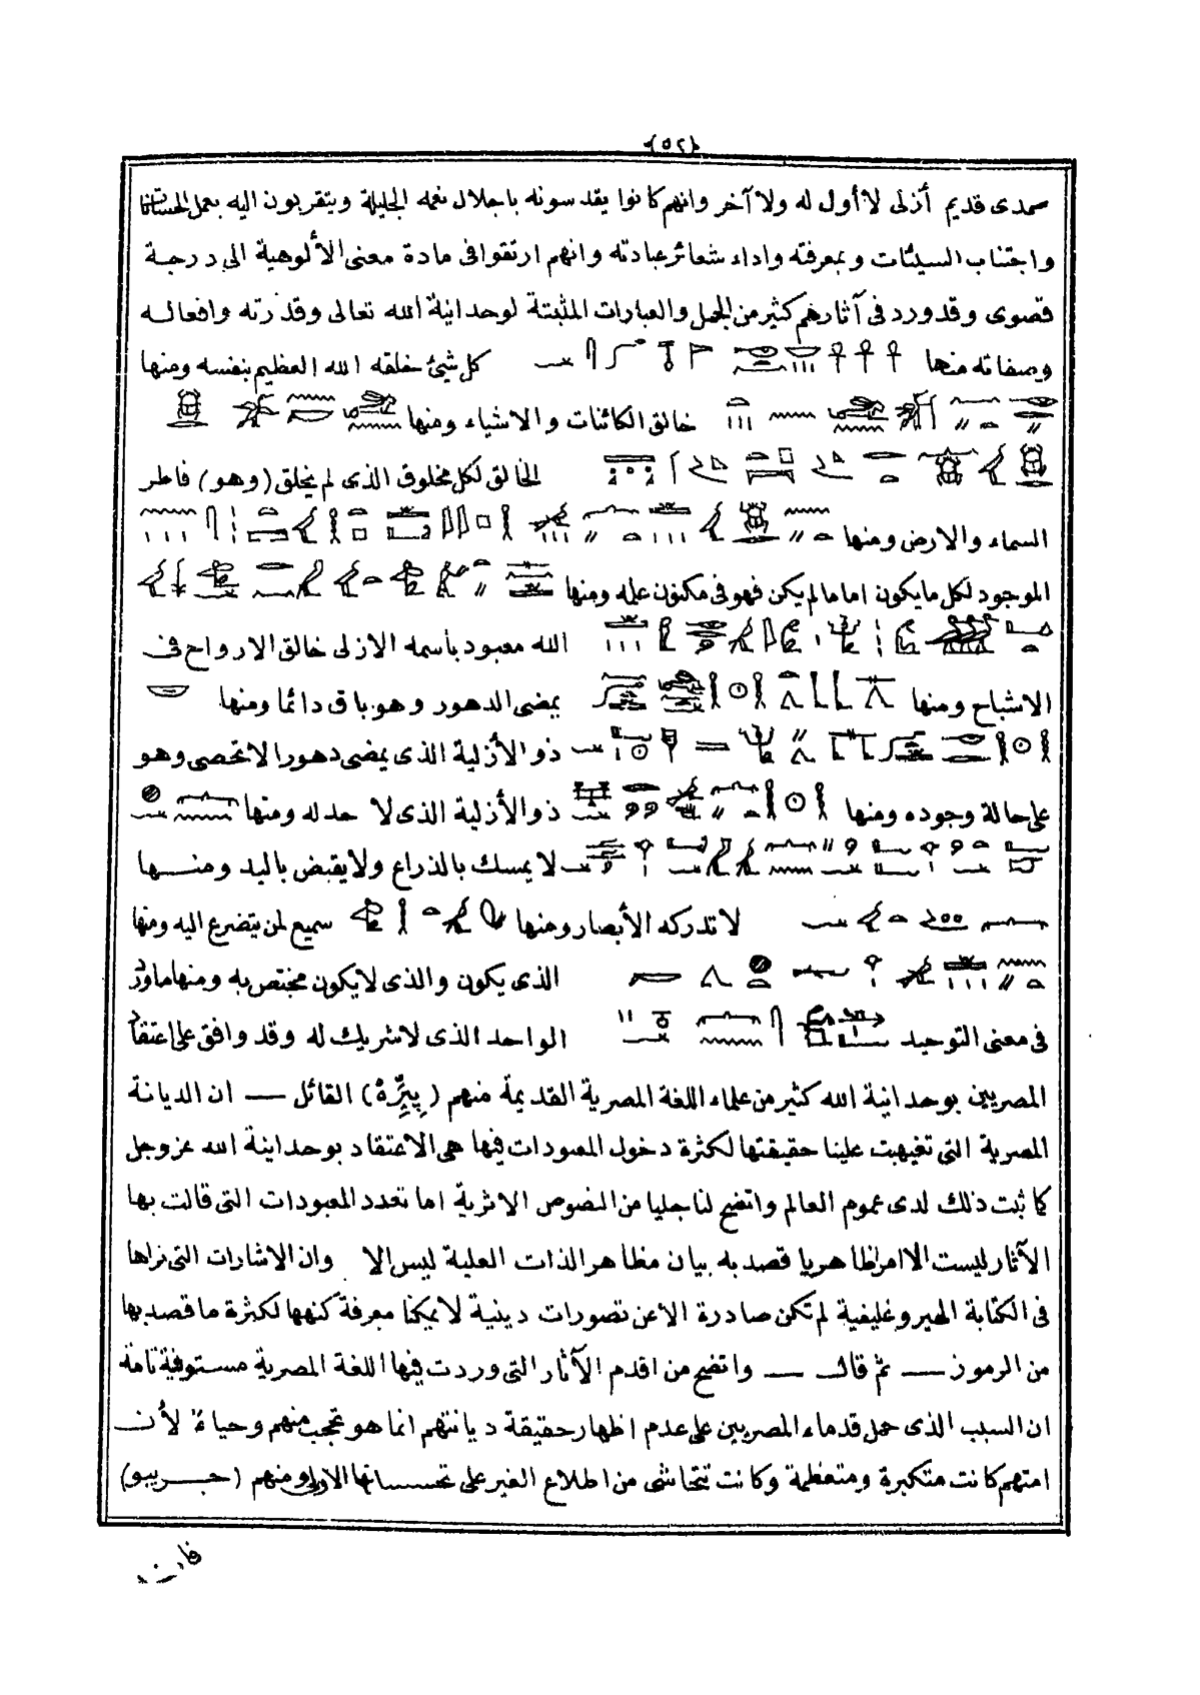 (٥٢)
صمدى قديم أزلى لا أول له ولا آخر وانهم كانوا يقدسونه باجلال نعمه الجليلة ويتقربون اليه بعمل الحسنات
واجتناب السيئات وبمعرفته واداء شعائر عبادته وانهم ارتقوا فى مادة معنى الألوهية الى درجة
قصوى وقد ورد فى آثارهم كثير من الجمل والعبارات المثبتة لوحدانية الله تعالى وقدرته وافعاله
وصفاته منها كل شيئ خلقه الله العظيم بنفسه ومنها
خالق الكائنات والاشياء ومنها
الخالق لكل مخلوق الذى لم يخلق (وهو) فاطر
السماء والارض ومنها
الموجود لكل ما يكون اما ما لم يكن فهو فى مكنون علمه ومنها
الله معبود بأسمه الازلى خالق الارواح فى
الاشباح ومنها يمضى الدهور وهو باق دائما ومنها
ذو الأزلية الذى يمضى دهورا لا تحصى وهو
على حالة وجوده ومنها ذو الأزلية الذى لا حد له ومنها
لا يمسك بالذراع ولا يقبض باليد ومنها
لا تدركه الأبصار ومنها سميع لمن يتضرع اليه ومنها
الذى يكون والذى لا يكون مختص به ومنها ماورد
فى معنى التوحيد الواحد الذى لا شريك له وقد وافق على اعتقاد
المصريين بوحدانية الله كثير من علماء اللغة المصرية القديمة منهم (پِيِّرِّهْ) القائل — ان الديانة
المصرية التى تغيهبت علينا حقيقتها لكثرة دخول المعبودات فيها هى الاعتقاد بوحداينة الله عز وجل
كما ثبت ذلك لدى عموم العالم واتضح لنا جليا من النصوص الاثرية اما تعدد المعبودات التى قالت بها
الآثار ليست الا امرا ظاهريا قصد به بيان مظاهر الذات العلية ليس الا وان الاشارات التى نراها
فى الكتابة الهيروغليفية لم تكن صادرة الا عن تصورات دينية لا يمكنا معرفة كنهها لكثرة ما قصد بها
من الرموز — ثم قال — واتضح من اقدم الآثار التى وردت فيها اللغة المصرية مستوفية تامة
ان السبب الذى حمل قدماء المصريين على عدم اظهار حقيقة ديانتهم انما هو تعجب منهم وحياء لأن
امتهم كانت متكبرة ومتعظمة وكانت تتحاشى من اطلاع الغير على تحسساتها الاولى ومنهم (جريبو)